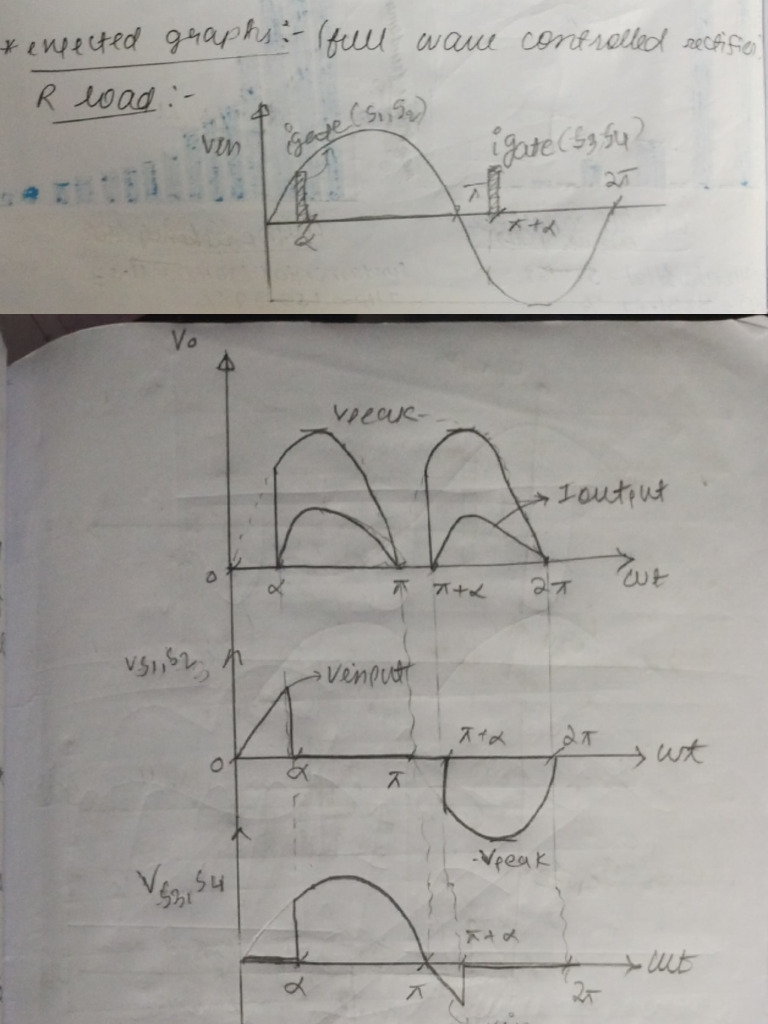 * expected graphs:- (full wave controlled rectifier)
R load:-
Vin
igate(S1,S2)
igate(S3,S4)
π
2π
α
π+α
Vo
Vpeak
Ioutput
0
α
π
π+α
2π
ωt
VS1,S2
Vinput
π+α
2π
ωt
0
α
π
-Vpeak
VS3,S4
π+α
α
π
2π
ωt